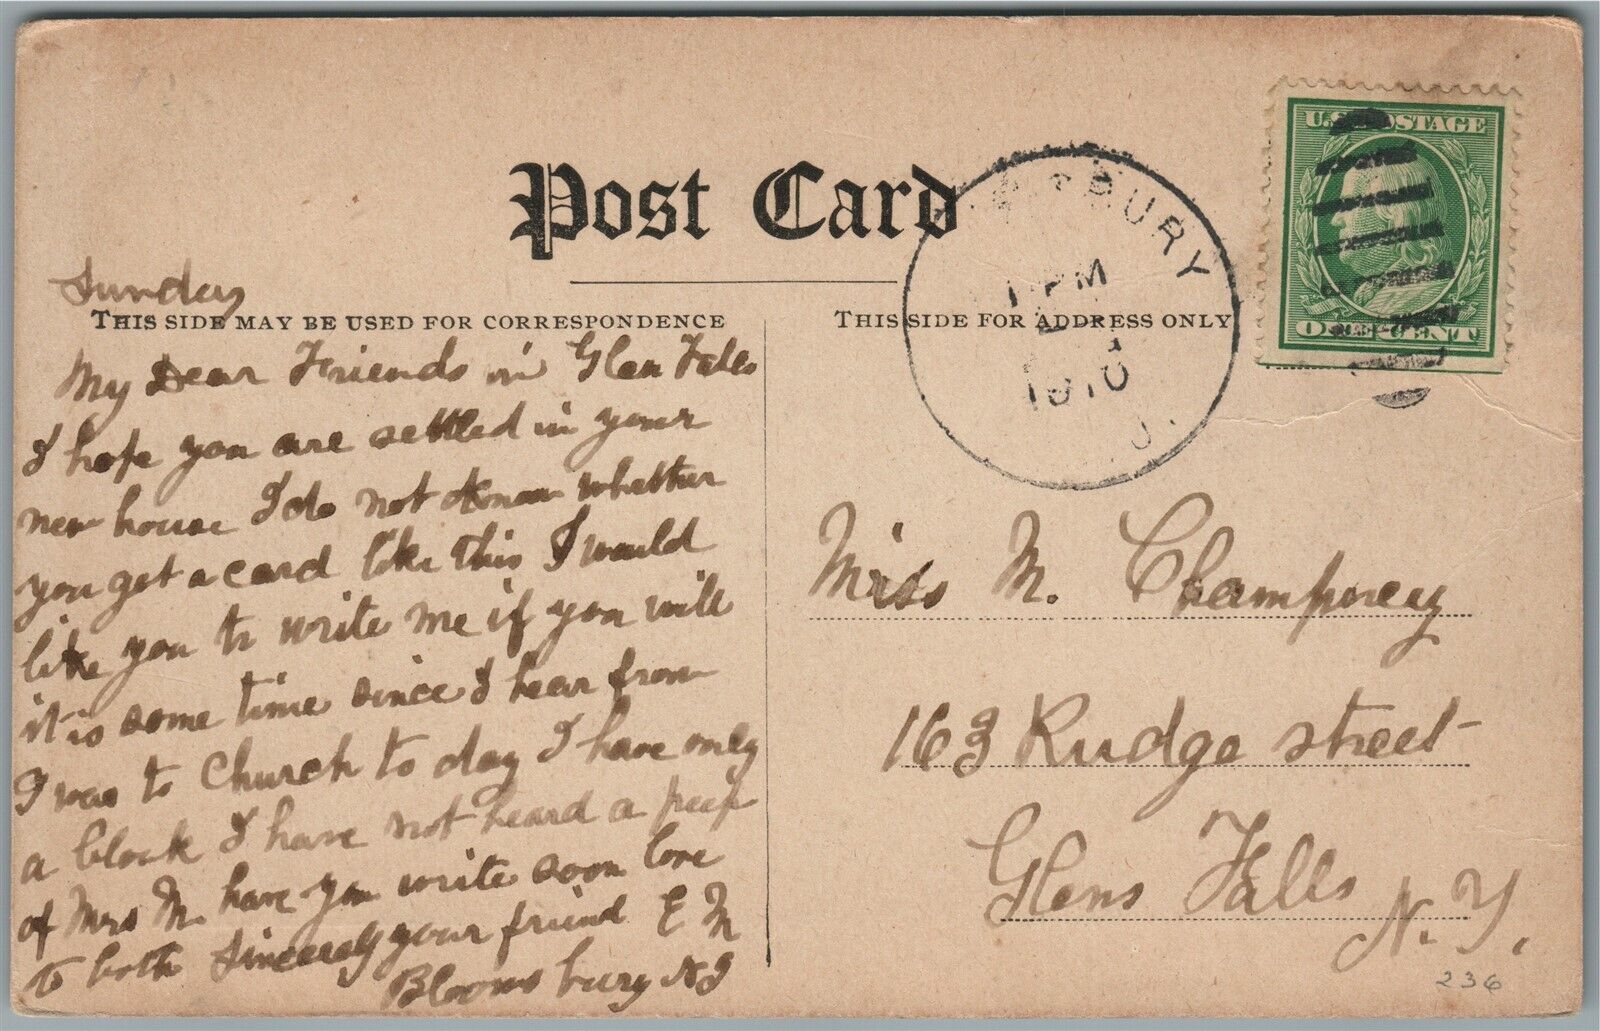 Post Card
U.S. POSTAGE
ONE CENT
TBURY
PM
1910
J.
Sunday
THIS SIDE MAY BE USED FOR CORRESPONDENCE
THIS SIDE FOR ADDRESS ONLY
My Dear Friends in Glen Falls
I hope you are settled in your
new house I do not know whether
you get a card like this I would
like you to write me if you will
it is some time since I hear from
I was to Church to day I have only
a block I have not heard a peep
of Mrs M. have you write soon love
to both Sincerely your friend E M
Bloomsbury NJ
Miss M. Champney
163 Rudge street
Glens Falls
N.Y.
236